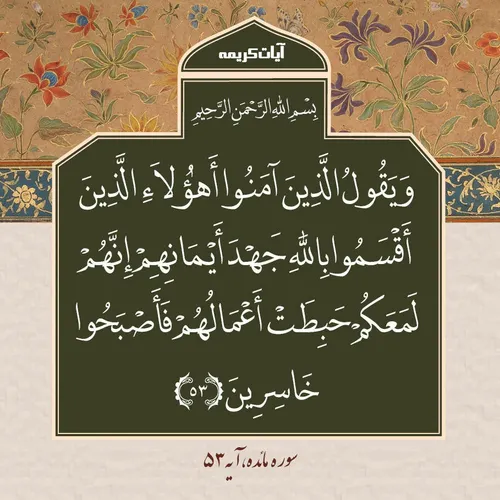 آیات کریمه
بِسْمِ اللهِ الرَّحْمَنِ الرَّحِيمِ
وَيَقُولُ الَّذِينَ آمَنُوا أَهَؤُلَاءِ الَّذِينَ
أَقْسَمُوا بِاللهِ جَهْدَ أَيْمَانِهِمْ إِنَّهُمْ
لَمَعَكُمْ حَبِطَتْ أَعْمَالُهُمْ فَأَصْبَحُوا
خَاسِرِينَ ﴿۵۳﴾
سوره مائده، آیه ۵۳